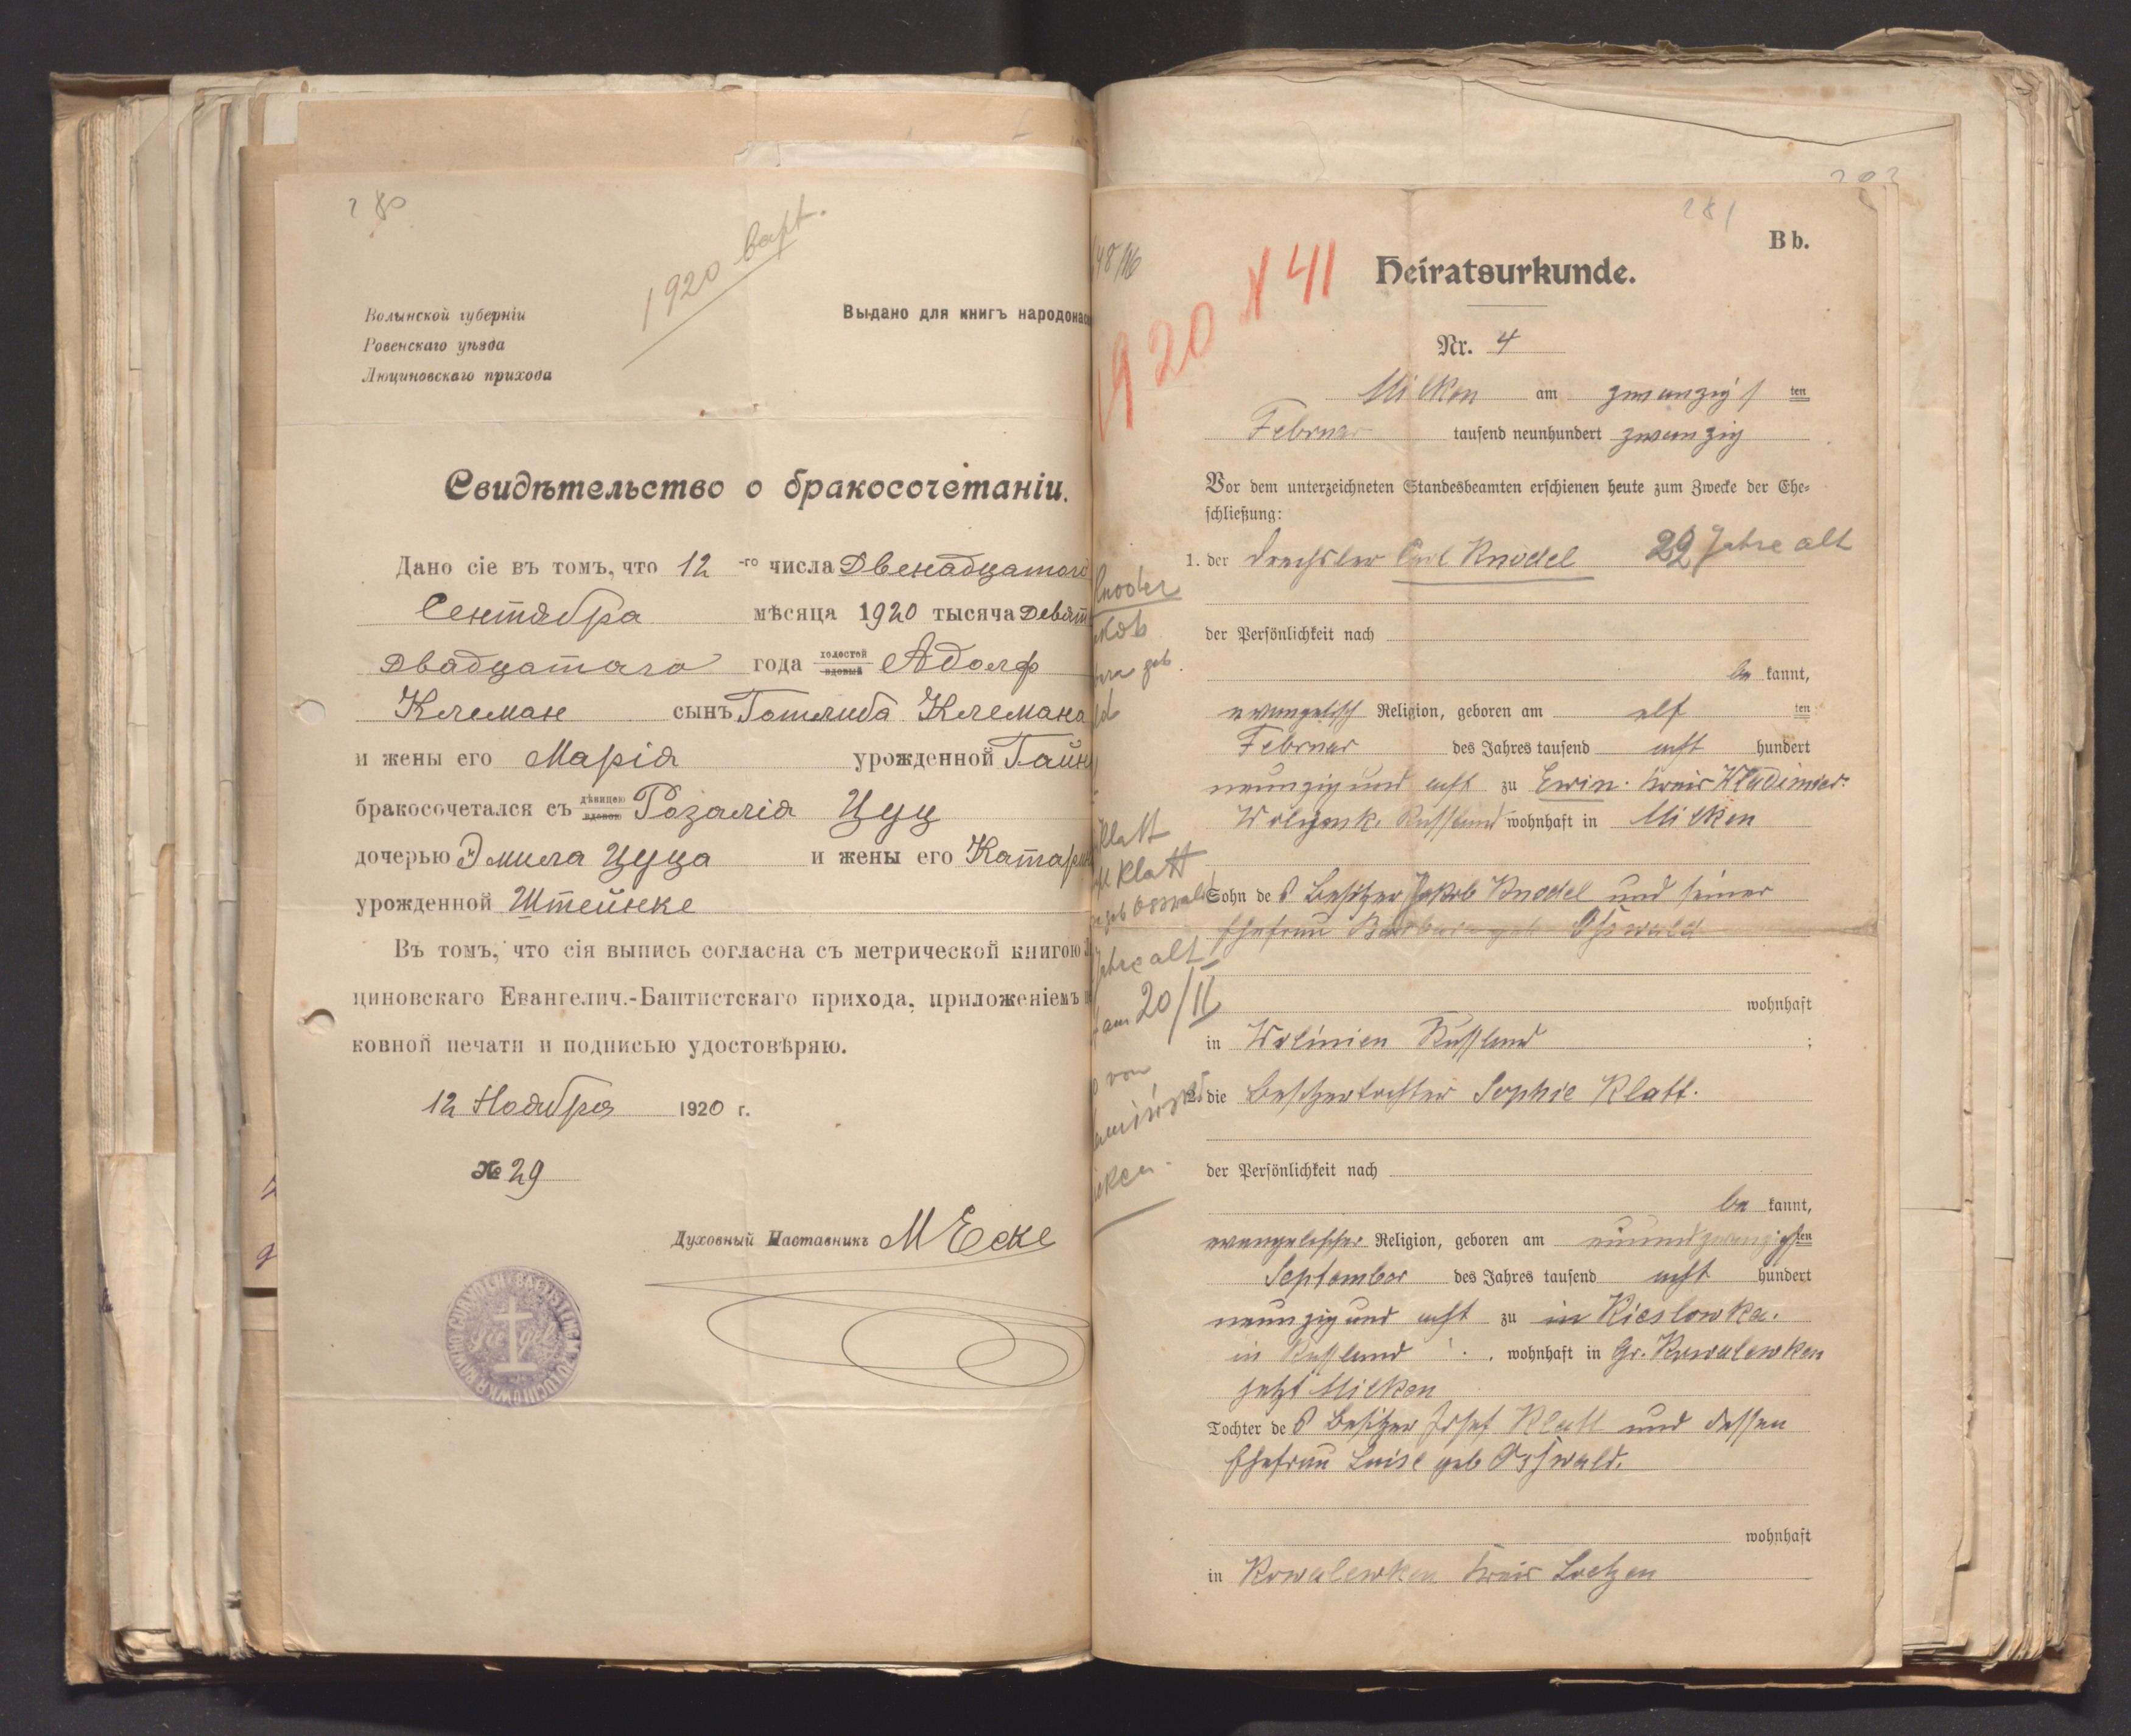 280
1920 Bapt.
Волынской губерніи
Ровенскаго уѣзда
Люциновскаго прихода
Выдано для книгъ народонас
Свидѣтельство о бракосочетаніи.
Дано сіе въ томъ, что 12 -го числа Двенадцатого
Сентября мѣсяца 1920 тысяча Девят
Двадцатаго года холостой вдовый Адолф
Клеман сынъ Готлиба Клемана
и жены его Марія урожденной Гайн
бракосочетался съ дѣвицею вдовою Розалія Цуц
дочерью Эмила Цуца и жены его Катари
урожденной Штейнке
Въ томъ, что сія выпись согласна съ метрической книгою Л
циновскаго Евангелич.-Баптистскаго прихода, приложеніемъ ц
ковной печати и подписью удостовѣряю.
12 Ноября 1920 г.
№ 29
Духовный Наставникъ М Еске
Siegel
281
B b.
1920 N 41
Heiratsurkunde.
Nr. 4
Milken am zwanzigs ten
Februar tausend neunhundert zwanzig
Vor dem unterzeichneten Standesbeamten erschienen heute zum Zwecke der Ehe=
schließung:
1. der Drechsler Carl Knodel 22 Jahre alt
der Persönlichkeit nach
be kannt,
evangelisch Religion, geboren am elf ten
Februar des Jahres tausend acht hundert
neunzig und acht zu Ewin. Kreis Wladimier.
Wolynsk. Russland wohnhaft in Milken
Sohn de s Besitzer Jakob Knodel und seiner
Ehefrau Barbara geb Osswald
wohnhaft
in Wolinien Russland ;
2. die Besitzertochter Sophie Klatt.
der Persönlichkeit nach
be kannt,
evangelischer Religion, geboren am einundzwanzigsten
September des Jahres tausend acht hundert
neunzig und acht zu in Kieslowka.
in Russland wohnhaft in Gr. Kowalewken
jetzt Milken
Tochter de s Besitzer Josef Klatt und dessen
Ehefrau Luise geb Osswald.
wohnhaft
in Kowalewken Kreis Loetzen
Knodel
Klatt
Klatt
geb Osswald
Jahre alt
am 20/II
von